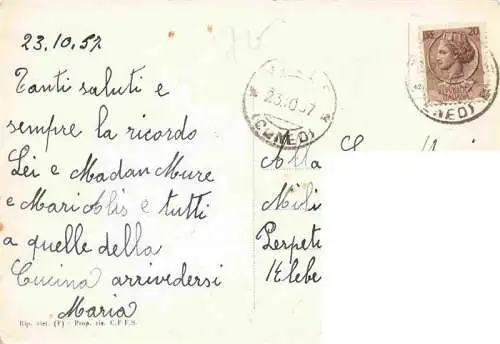 23.10.57
Tanti saluti e
sempre la ricordo
Lei e Madan Mure
e Mari Alis e tutti
a quelle della
Cucina arrivedersi
Maria
Rip. viet. (F) - Prop. ris. C.F.F.S.
23.10.57
(CUNEO)
20
REPUBBLICA
ITALIANA
(CUNEO)
Alla
Mili
Perpeti